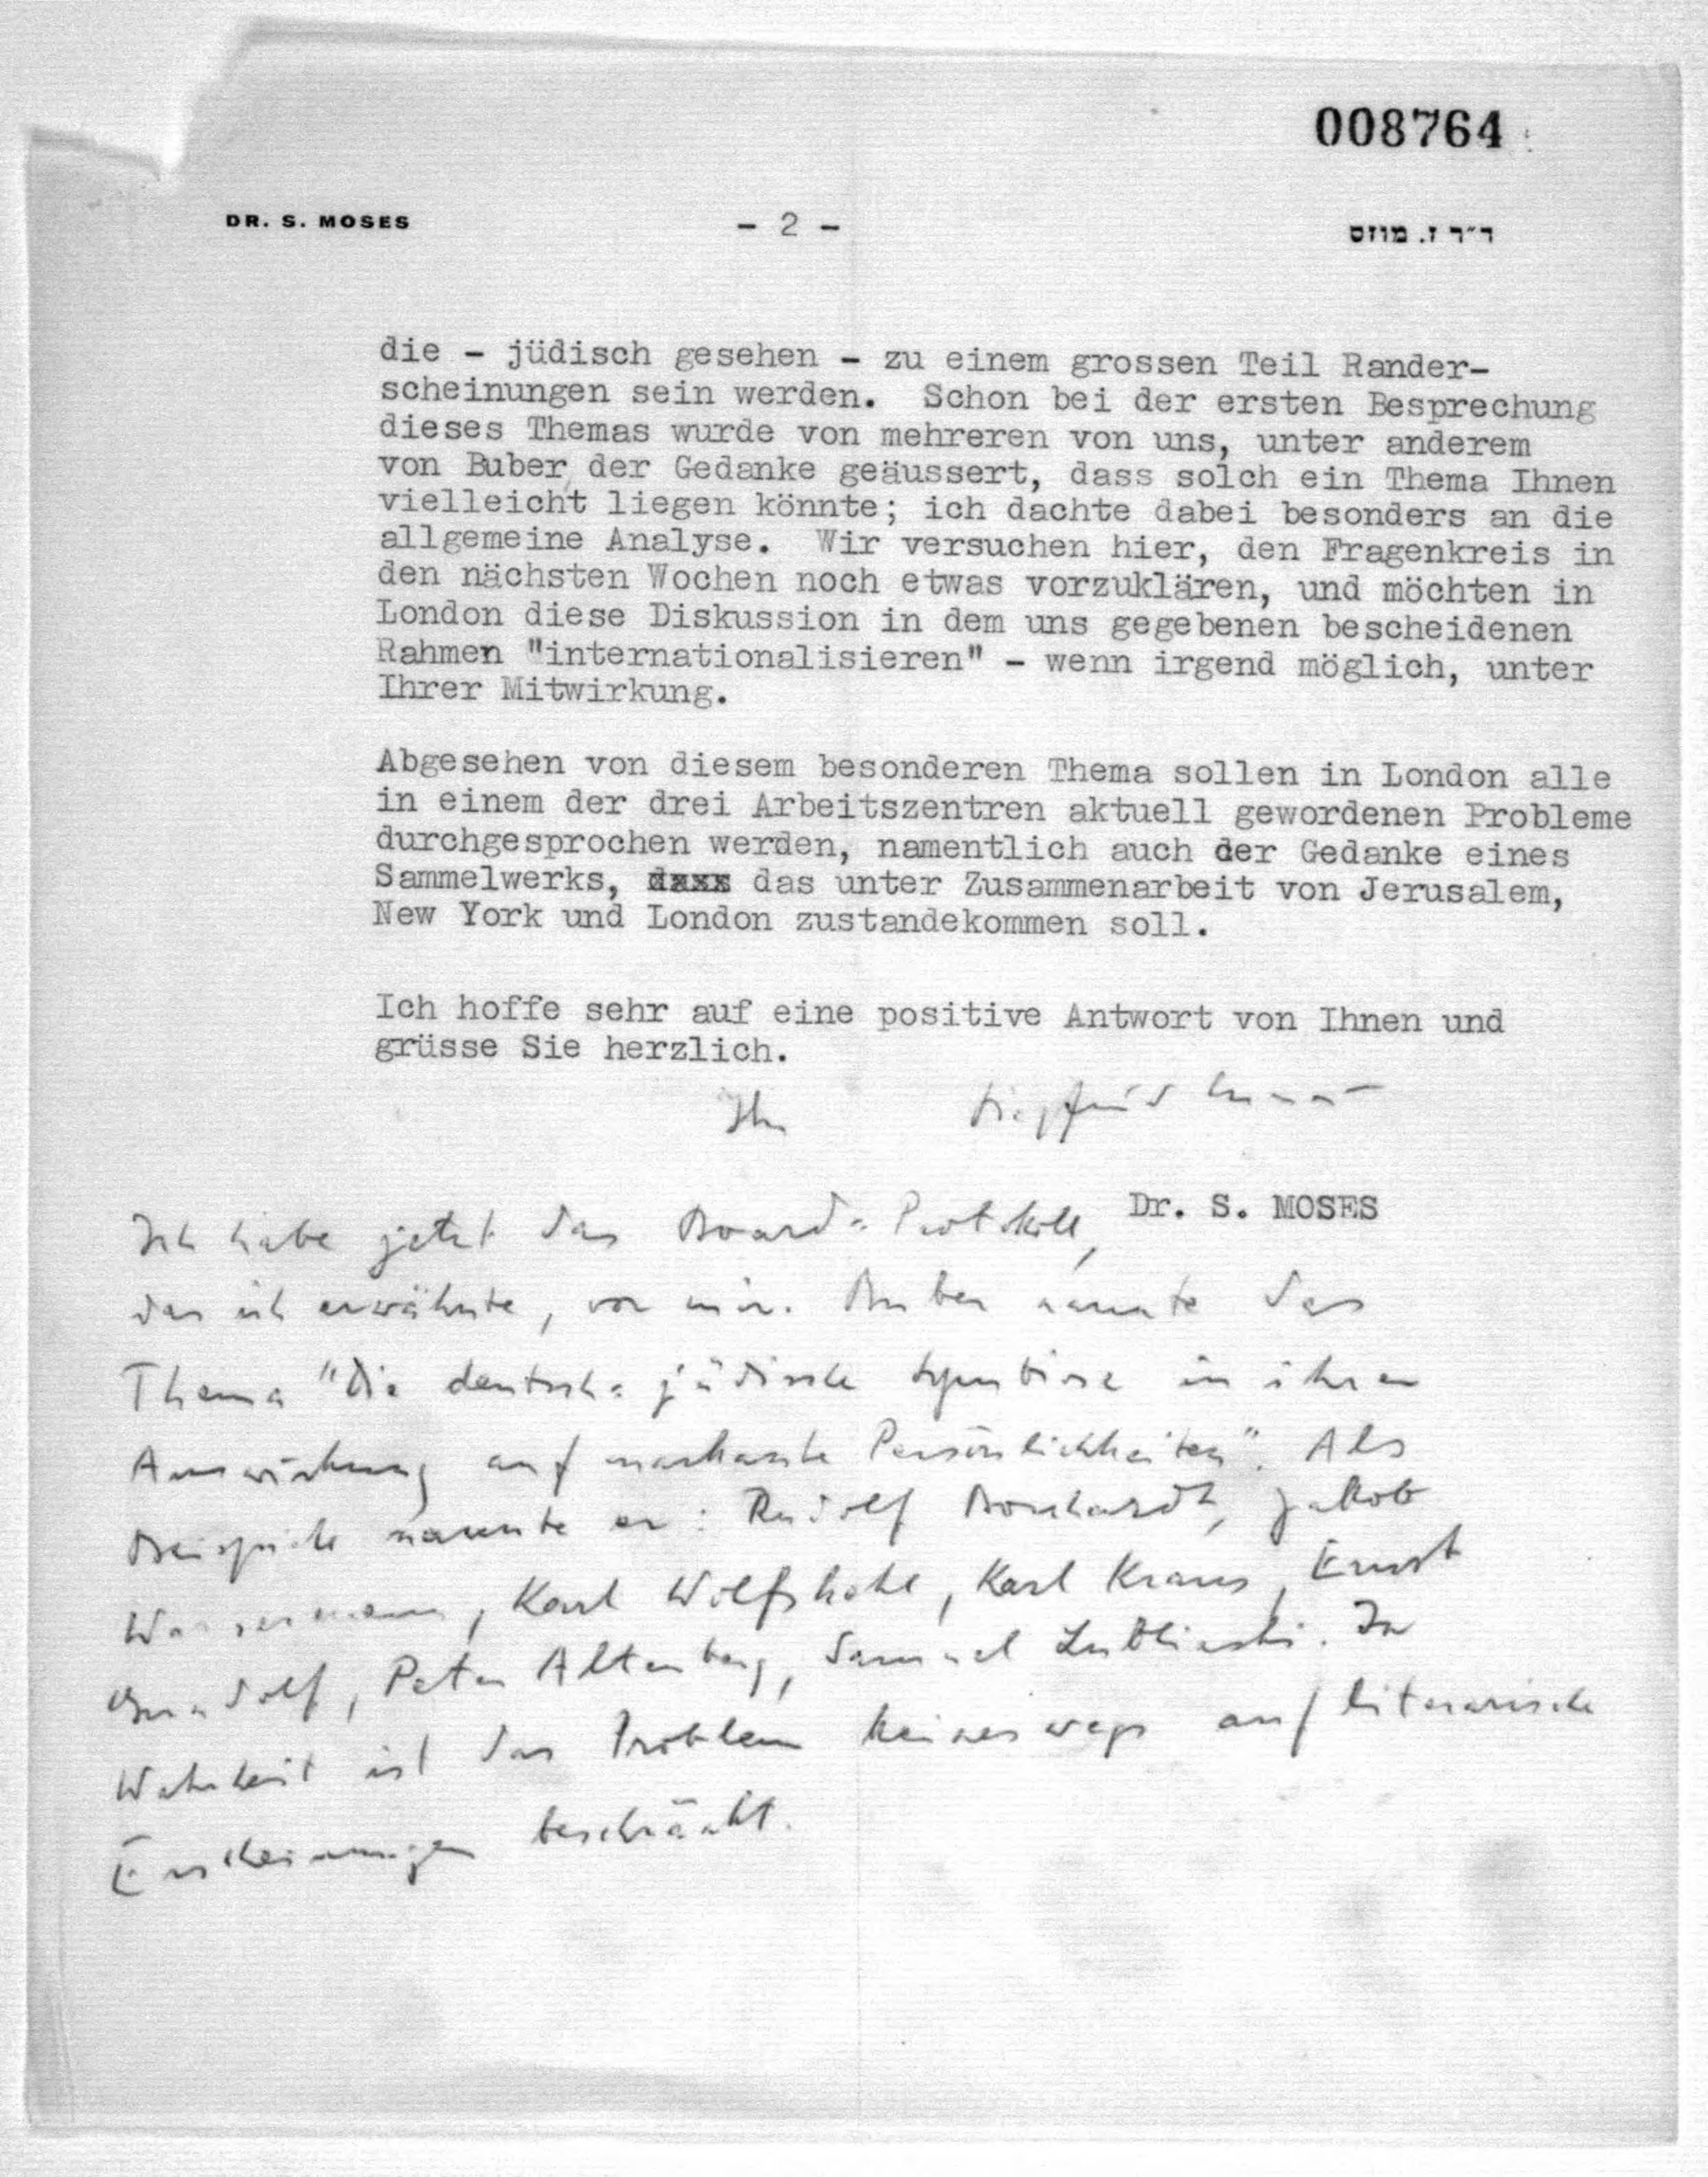 008764
DR. S. MOSES - 2 - ד״ר ז. מוזס
die - jüdisch gesehen - zu einem grossen Teil Rander-
scheinungen sein werden. Schon bei der ersten Besprechung
dieses Themas wurde von mehreren von uns, unter anderem
von Buber, der Gedanke geäussert, dass solch ein Thema Ihnen
vielleicht liegen könnte; ich dachte dabei besonders an die
allgemeine Analyse. Wir versuchen hier, den Fragenkreis in
den nächsten Wochen noch etwas vorzuklären, und möchten in
London diese Diskussion in dem uns gegebenen bescheidenen
Rahmen "internationalisieren" - wenn irgend möglich, unter
Ihrer Mitwirkung.
Abgesehen von diesem besonderen Thema sollen in London alle
in einem der drei Arbeitszentren aktuell gewordenen Probleme
durchgesprochen werden, namentlich auch der Gedanke eines
Sammelwerks, das unter Zusammenarbeit von Jerusalem,
New York und London zustandekommen soll.
Ich hoffe sehr auf eine positive Antwort von Ihnen und
grüsse Sie herzlich.
Ihr Siegfried Moses
Dr. S. MOSES
Ich habe jetzt das Board-Protokoll,
das ich erwähnte, vor mir. Buber nannte das
Thema "Die deutsch-jüdische Symbiose in ihrer
Auswirkung auf markante Persönlichkeiten". Als
Beispiele nannte er: Rudolf Borchardt, Jakob
Wassermann, Karl Wolfskehl, Karl Kraus, Ernst
Gundolf, Peter Altenberg, Samuel Lublinski. In
Wahrheit ist das Problem keineswegs auf literarische
Erscheinungen beschränkt.